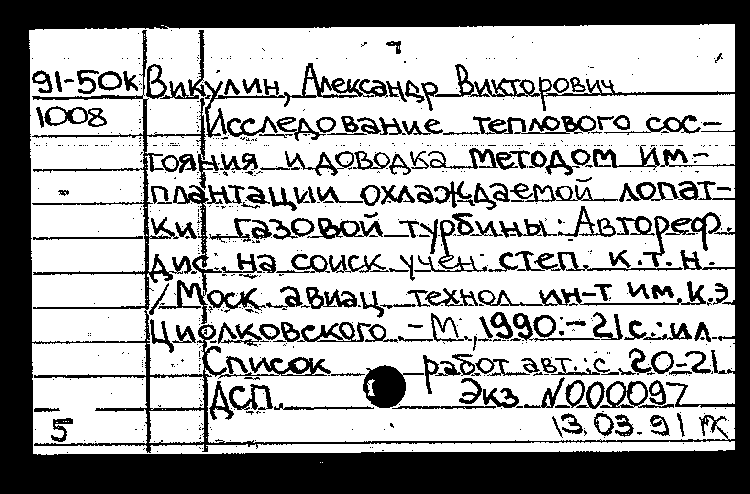 91-50к Викулин, Александр Викторович
1008 Исследование теплового сос-
тояния и доводка методом им-
плантации охлаждаемой лопат-
ки газовой турбины: Автореф.
дис. на соиск. учен. степ. к.т.н.
/Моск. авиац. технол. ин-т им. К.Э.
Циолковского. - М., 1990. - 21 с.: ил
Список работ авт.: с. 20-21.
ДСП. Экз. №000097
5 13.03.91